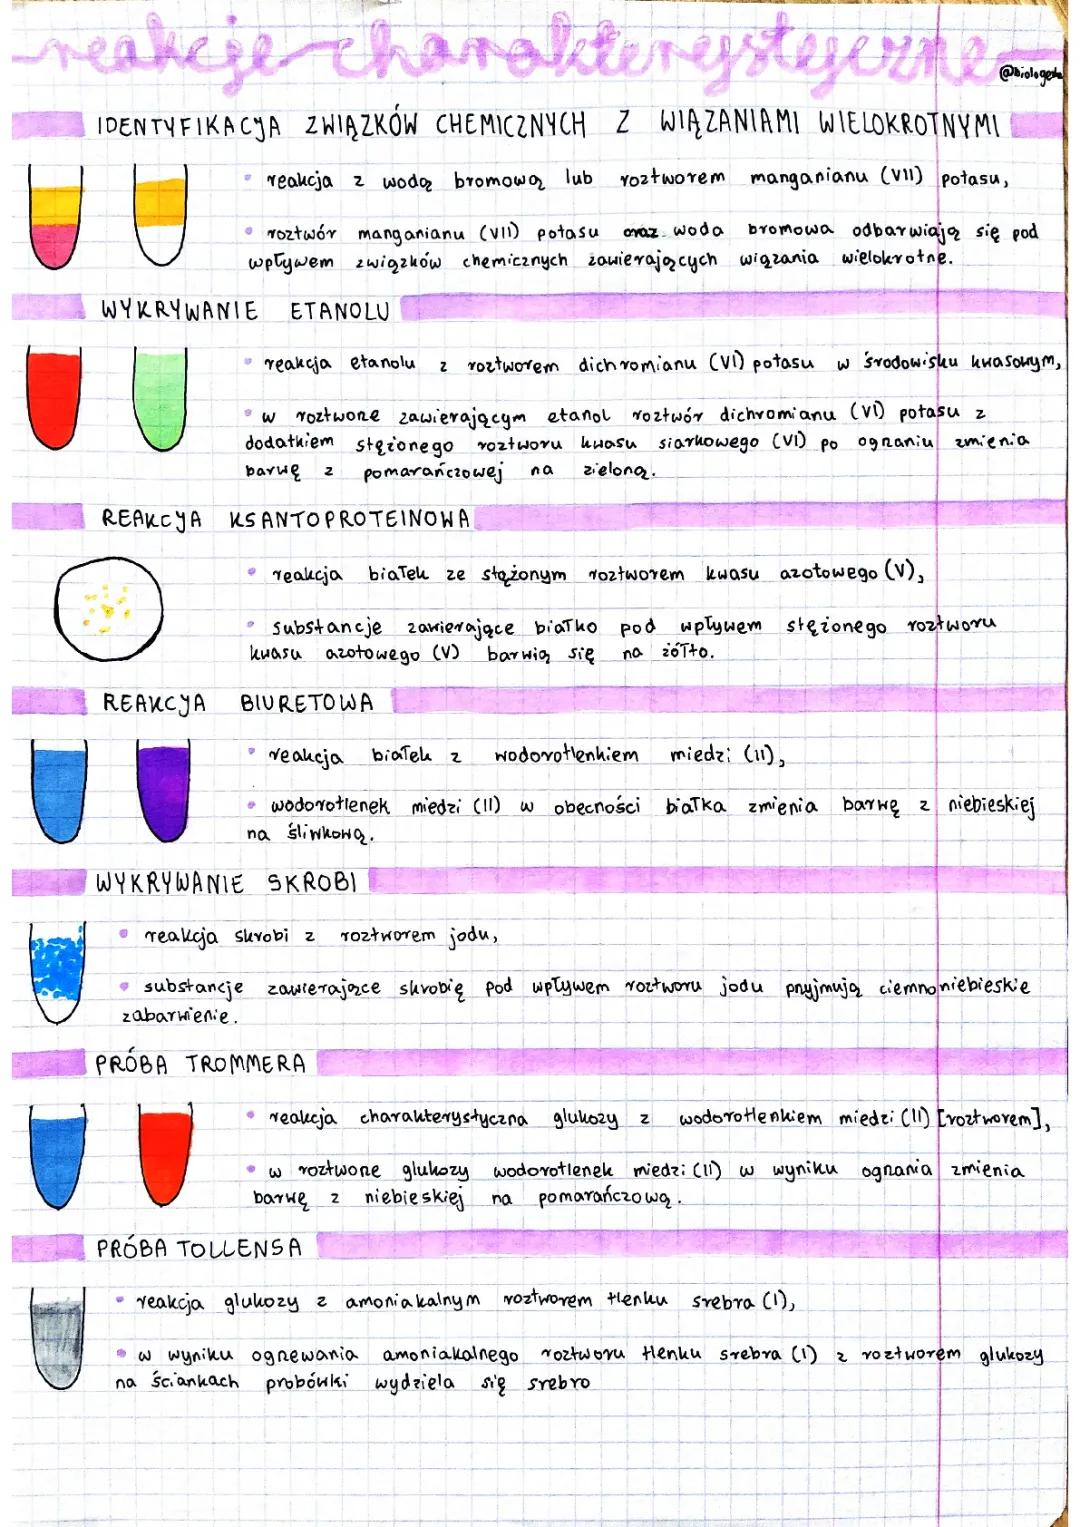 reakcje charakterystyczne
@biologeek
IDENTYFIKACJA ZWIĄZKÓW CHEMICZNYCH Z WIĄZANIAMI WIELOKROTNYMI
• reakcja z wodą bromową lub roztworem manganianu (VII) potasu,
• roztwór manganianu (VII) potasu oraz woda bromowa odbarwiają się pod
wpływem związków chemicznych zawierających wiązania wielokrotne.
WYKRYWANIE ETANOLU
• reakcja etanolu z roztworem dichromianu (VI) potasu w środowisku kwasowym,
• w roztworze zawierającym etanol roztwór dichromianu (VI) potasu z
dodatkiem stężonego roztworu kwasu siarkowego (VI) po ogrzaniu zmienia
barwę z pomarańczowej na zieloną.
REAKCJA KSANTOPROTEINOWA
• reakcja białek ze stężonym roztworem kwasu azotowego (V),
• substancje zawierające białko pod wpływem stężonego roztworu
kwasu azotowego (V) barwią się na żółto.
REAKCJA BIURETOWA
• reakcja białek z wodorotlenkiem miedzi (II),
• wodorotlenek miedzi (II) w obecności białka zmienia barwę z niebieskiej
na śliwkową.
WYKRYWANIE SKROBI
• reakcja skrobi z roztworem jodu,
• substancje zawierające skrobię pod wpływem roztworu jodu przyjmują ciemnoniebieskie
zabarwienie.
PRÓBA TROMMERA
• reakcja charakterystyczna glukozy z wodorotlenkiem miedzi (II) [roztworem],
• w roztworze glukozy wodorotlenek miedzi (II) w wyniku ogrzania zmienia
barwę z niebieskiej na pomarańczową.
PRÓBA TOLLENSA
• reakcja glukozy z amoniakalnym roztworem tlenku srebra (I),
• w wyniku ogrzewania amoniakalnego roztworu tlenku srebra (I) z roztworem glukozy
na ściankach probówki wydziela się srebro